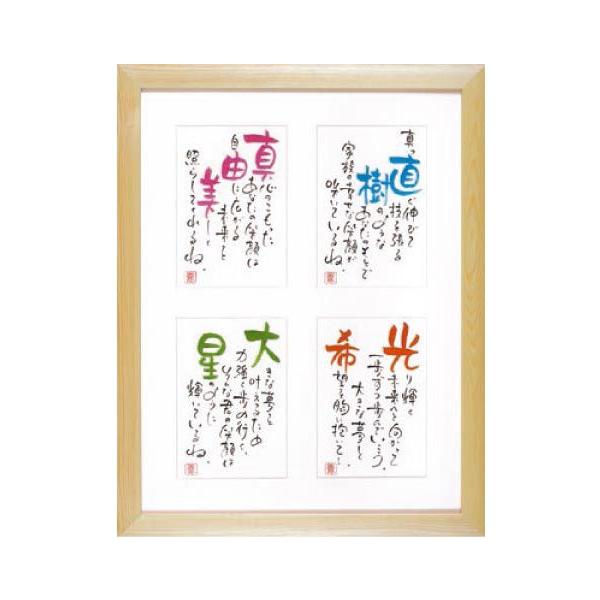 真っ直ぐ伸びて
枝を張る
樹のような
あなたのそばで
家族の幸せな笑顔が
咲いているね。
真心のこもった
あなたの笑顔は
自由に広がる
未来を
美しく
照らしてくれるね。
光り輝く
未来へと向かって
一歩ずつ歩んでいこう。
大きな夢と
希望を胸に抱いて…
大きな夢を
叶えるため
力強く歩み行く
そんな君の笑顔は
星のように
輝いているね。